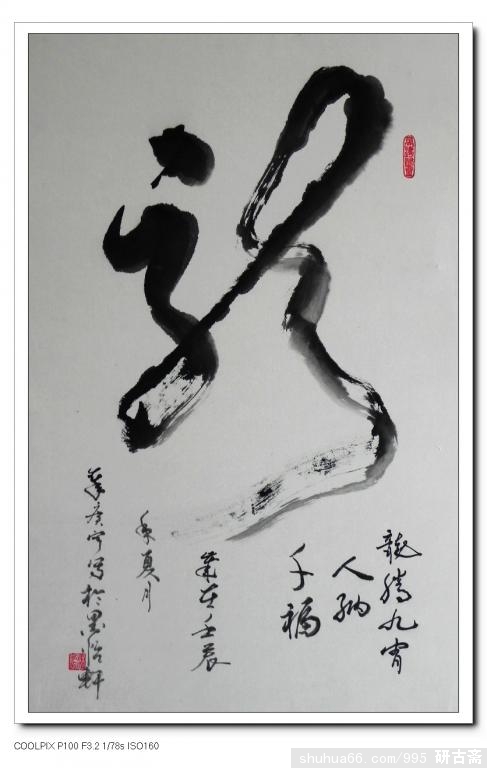 龍
龍騰九宵
人納
千福
歲在壬辰
年夏月
寫於墨治軒
COOLPIX P100 F3.2 1/78s ISO160
shuhua66.com/995 研古斋